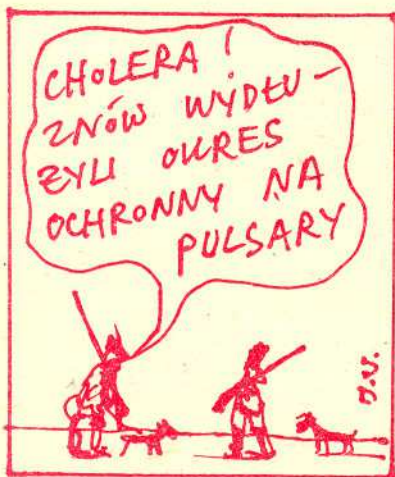 CHOLERA!
ZNÓW WYDŁU-
ŻYLI OKRES
OCHRONNY NA
PULSARY
J.W.